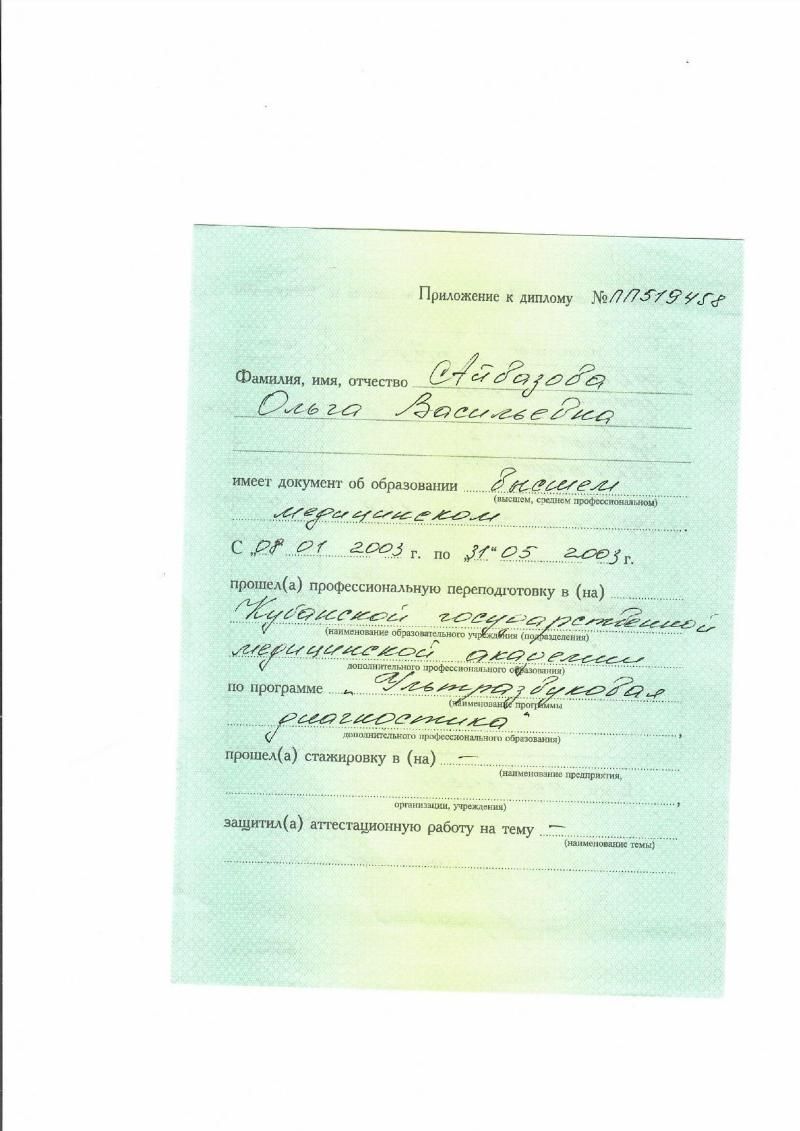 Приложение к диплому № ПП519458
Фамилия, имя, отчество Айвазова
Ольга Васильевна
имеет документ об образовании высшем
(высшем, среднем профессиональном)
медицинском .
С „08“ 01 2003 г. по „31“ 05 2003 г.
прошел(а) профессиональную переподготовку в (на)
Кубанской государственной
(наименование образовательного учреждения (подразделения)
медицинской академии
дополнительного профессионального образования)
по программе „Ультразвуковая
(наименование программы
диагностика“ ,
дополнительного профессионального образования)
прошел(а) стажировку в (на) —
(наименование предприятия,
организации, учреждения) ,
защитил(а) аттестационную работу на тему —
(наименование темы)